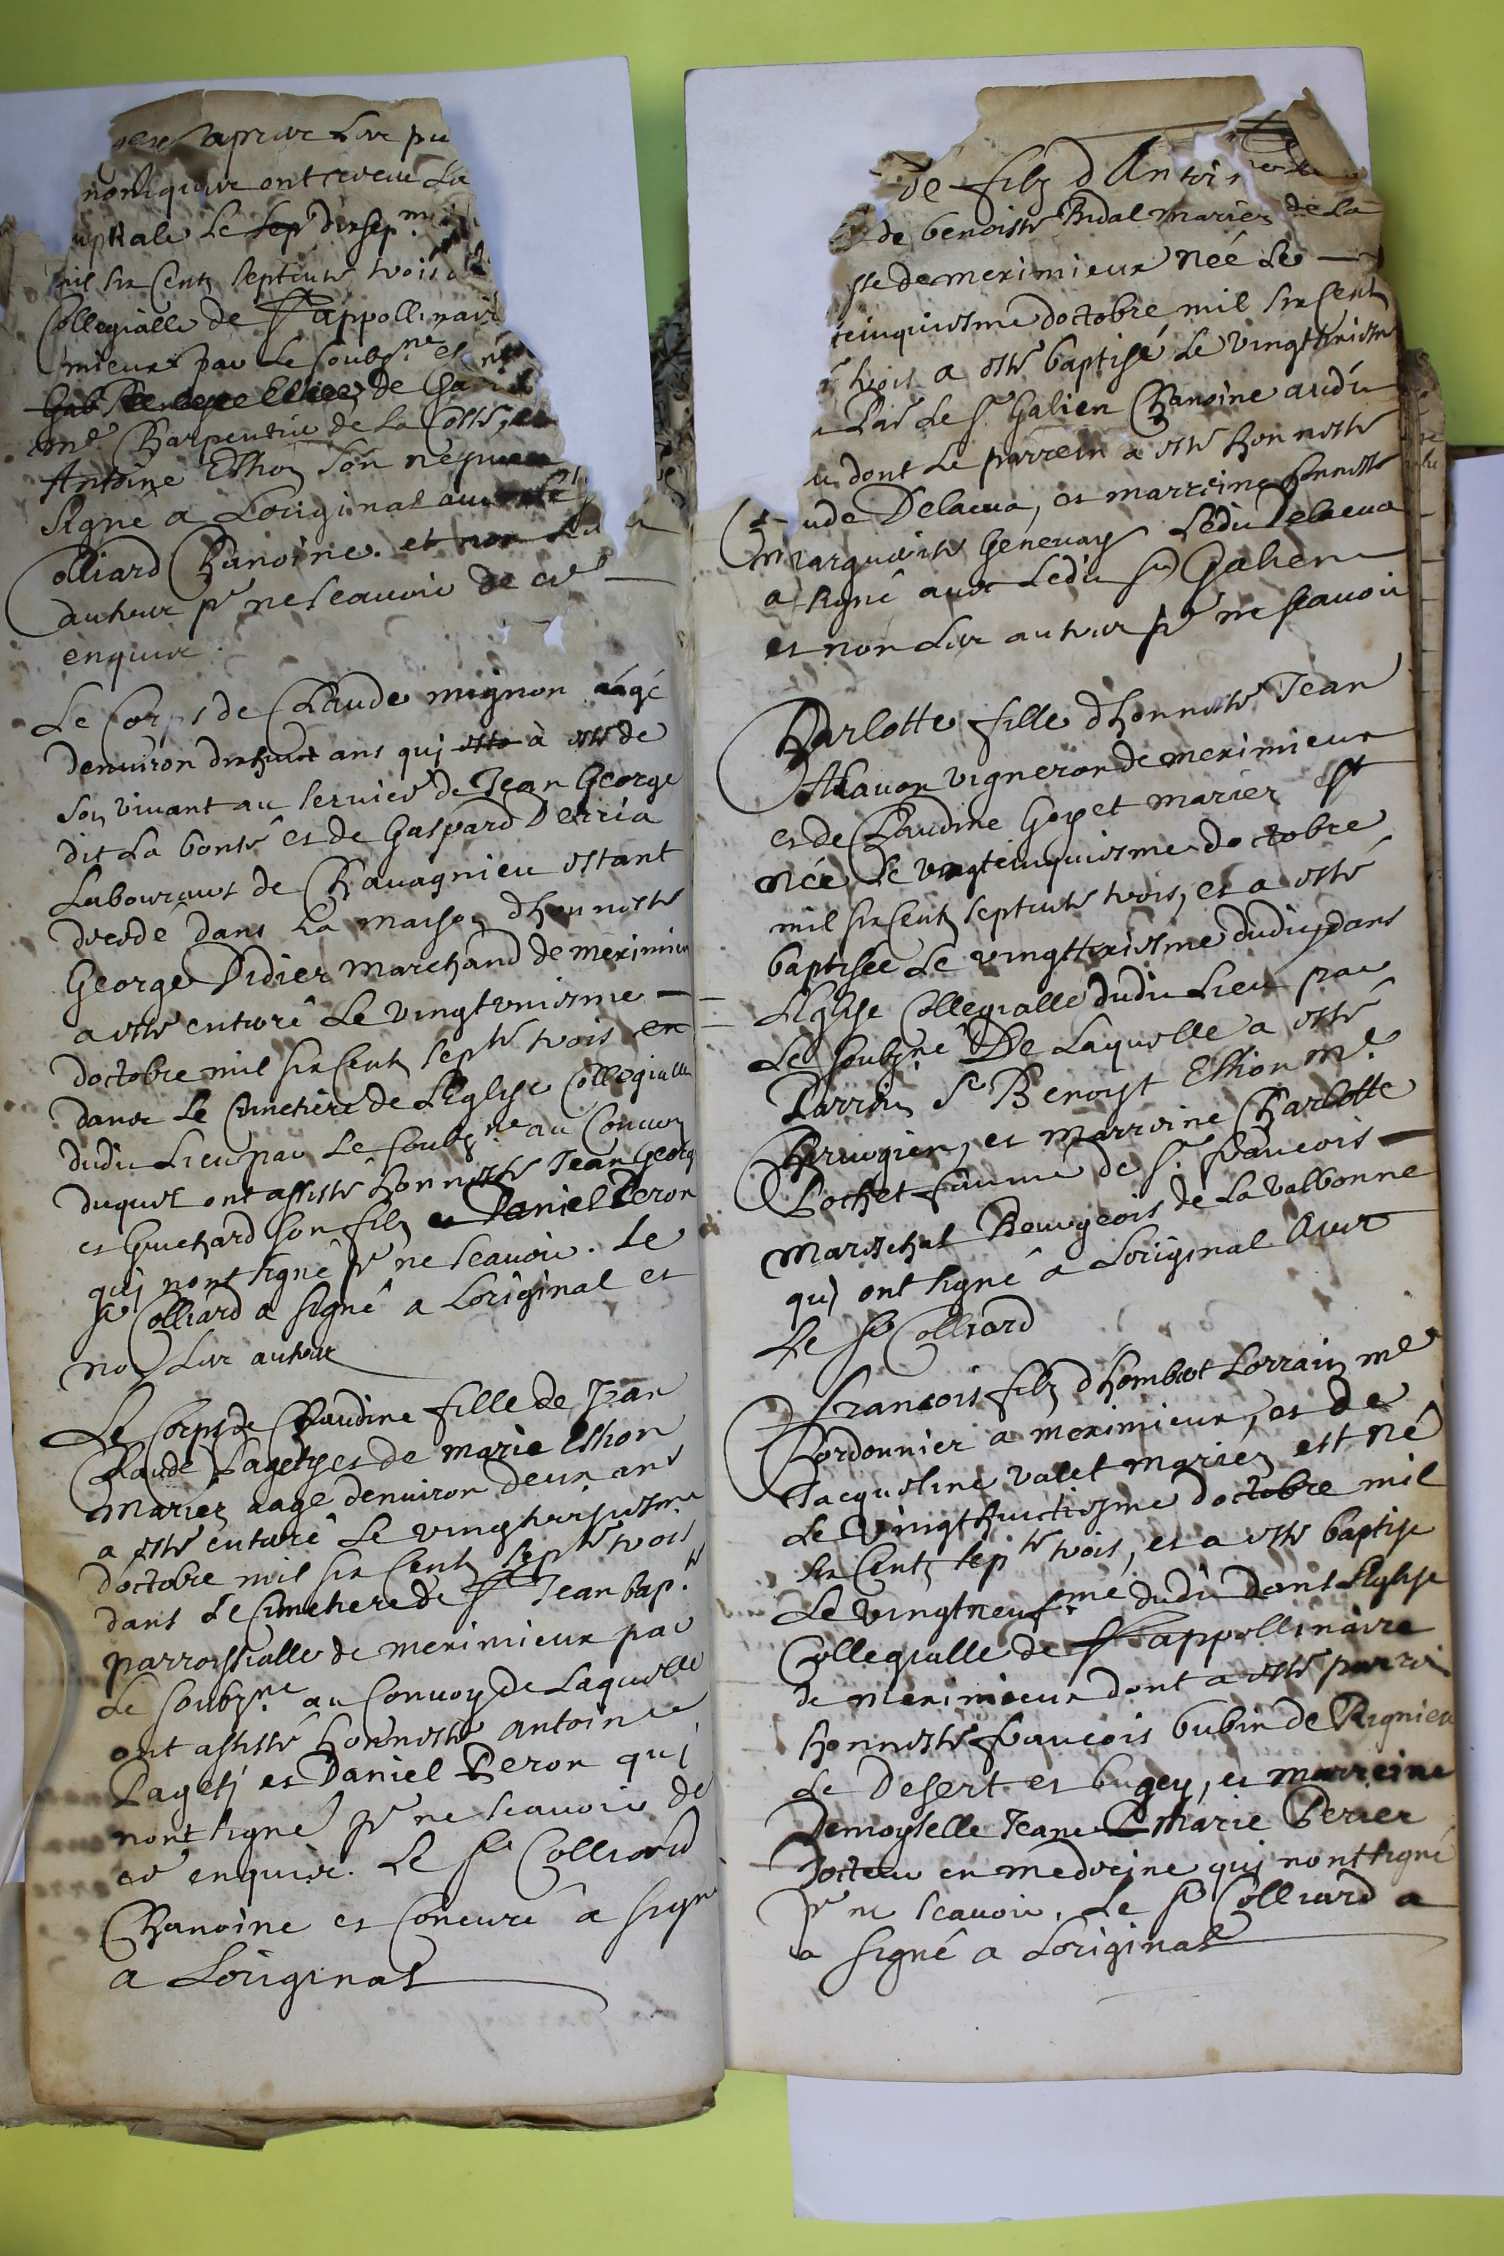 nont que
uptiale Le dixsep.m
mil six Centz septente trois
Collegialle de St appollinair
mieux par Le soubz.ne et
de
me Charpentier de La Coste,
Antoine Esthon son nepveu
Signe a Loriginal
Colliard Chanoine. et non Les
autres pr ne scavoir de ce
enquis.
Le Corps de Claude mignon aagé
denviron dixhuict ans qui à esté de
son vivant au service de Jean George
dit La bonté et de Gaspard Derria
Laboureurs de Chavagnieu estant
decede dans La maison dhonneste
George Didier marchand de meximieu
a esté enterré Le vingtuniesme
doctobre mil six Centz septte trois
dans Le Cimetiere de Leglise Collegialle
dudit Lieu par Le soubz.ne au Convoy
duquel ont assisté honneste Jean George
et Guichard son filz et Daniel Peron
qui nont signé pr ne scavoir. Le
Sr Colliard a signé a Loriginal et
non Les autres
Le Corps de Claudine fille de Jean
Claude Pagety et de marie Esthon
mariez aagé denviron deux ans
a esté enterré Le
doctobre mil six Centz septte trois
dans Le Cimetiere de St Jean bap.te
parroissialle de meximieux par
Le soubz.ne au Convoy de Laquelle
ont assisté honneste antoine
Pagety et Daniel Peron qui
nont signé pr ne scavoir de
ce enquis. Le Sr Colliard
Chanoine et Coneuré a signé
a Loriginal
de filz d Antoi
de benoiste Bidal mariez de La
sse de meximieux Née Le
cinquiesme doctobre mil six Centz
trois a esté baptisé Le
Par Le Sr Galien Chanoine audit
dont Le parrein a esté honneste
ude Delacua, et marreine honneste
marguerite Genevay Ledit Delacua
a signé avec Ledit Sr Galien
et non Les autres pr ne scavoir
Charlotte fille dhonneste Jean
vigneron de meximieux
et de Claudine Goyet mariez est
née Le vingtcinquiesme doctobre
mil six Centz septente trois, et a esté
baptisée Le dudit dans
Leglise Collegialle dudit Lieu par
Le soubz.ne De Laquelle a esté
Parrein Sr Benoist Esthion me
Chirurgien, et marreine Charlotte
Pochet femme de Sr francois
mareschal Bourgeois de La valbonne
qui ont signé a Loriginal avec
Le Sr Colliard
francois filz dhombert Lorrain me
Cordonnier a meximieux, et de
Jacqueline valet mariez est né
Le vingthuictiesme doctobre mil
six Centz septte trois, et a esté baptise
Le vingtneuf.me dudit dans Leglise
Collegialle de St appollinaire
de meximieux dont a esté parrein
honneste francois bubin de Rignieu
Le Desert et bugey, et marreine
Demoyselle Jeane Marie Perier
Docteur en medecine qui nont signé
pr ne scavoir. Le Sr Colliard a
a signé a Loriginal